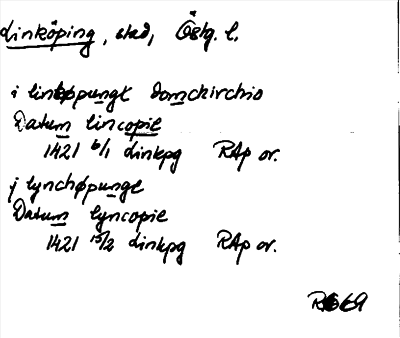 Linköping, stad, Östg. l.
i linkøpungt domchirchio
Datum lincopie
1421 6/1 Linkpg RAp or.
j lynchøpunge
Datum lyncopie
1421 15/2 Linkpg RAp or.